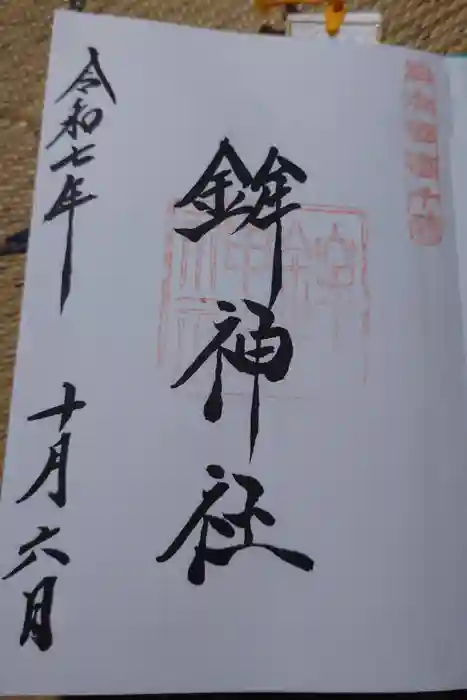 鉾神社
令和七年 十月六日